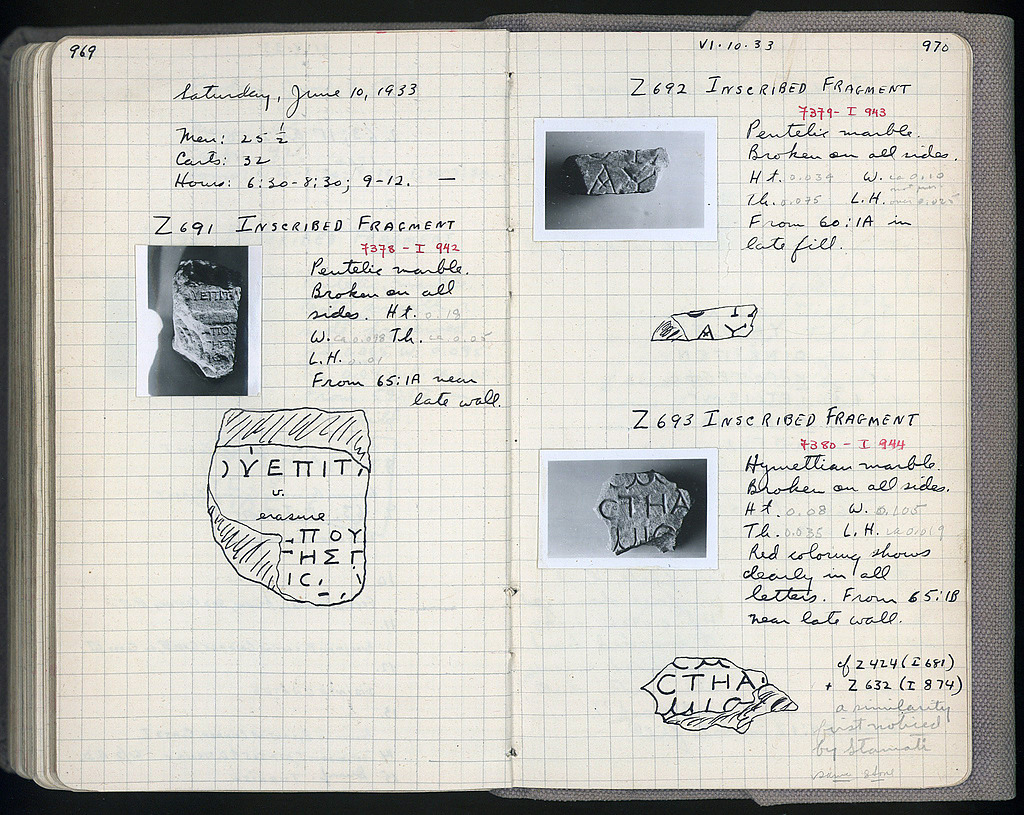 969
Saturday, June 10, 1933
Men: 25 ½
Carts: 32
Hours: 6:30-8:30; 9-12. —
Z691 INSCRIBED FRAGMENT
7378 - I 942
Pentelic marble.
Broken on all
sides. Ht. 0.18
W. ca 0.098 Th. ca 0.05,
L.H. 0.01
From 65:1A near
late wall.
ΥΕΠΙΤ
ΠΟ
ΗΣ
ΥΕΠΙΤ
v.
erasure
ΠΟΥ
ΗΣΓ
ΙС.
VI.10.33
970
Z692 INSCRIBED FRAGMENT
7379- I 943
Pentelic marble.
Broken on all sides.
Ht. 0.034 W. ca 0.10
Th. 0.075 L.H.
From 60:1A in
late fill.
ΑΥ
ΑΥ
Z693 INSCRIBED FRAGMENT
7380 - I 944
Hymettian marble.
Broken on all sides.
Ht. 0.08 W. 0.105
Th. 0.035 L.H. ca 0.019
Red coloring shows
clearly in all
letters. From 65:1B
near late wall.
СΤΗΑ
СΤΗΑ
cf Z424 (I 681)
+ Z632 (I 874)
a similarity
first noticed
by Stamati
same stone